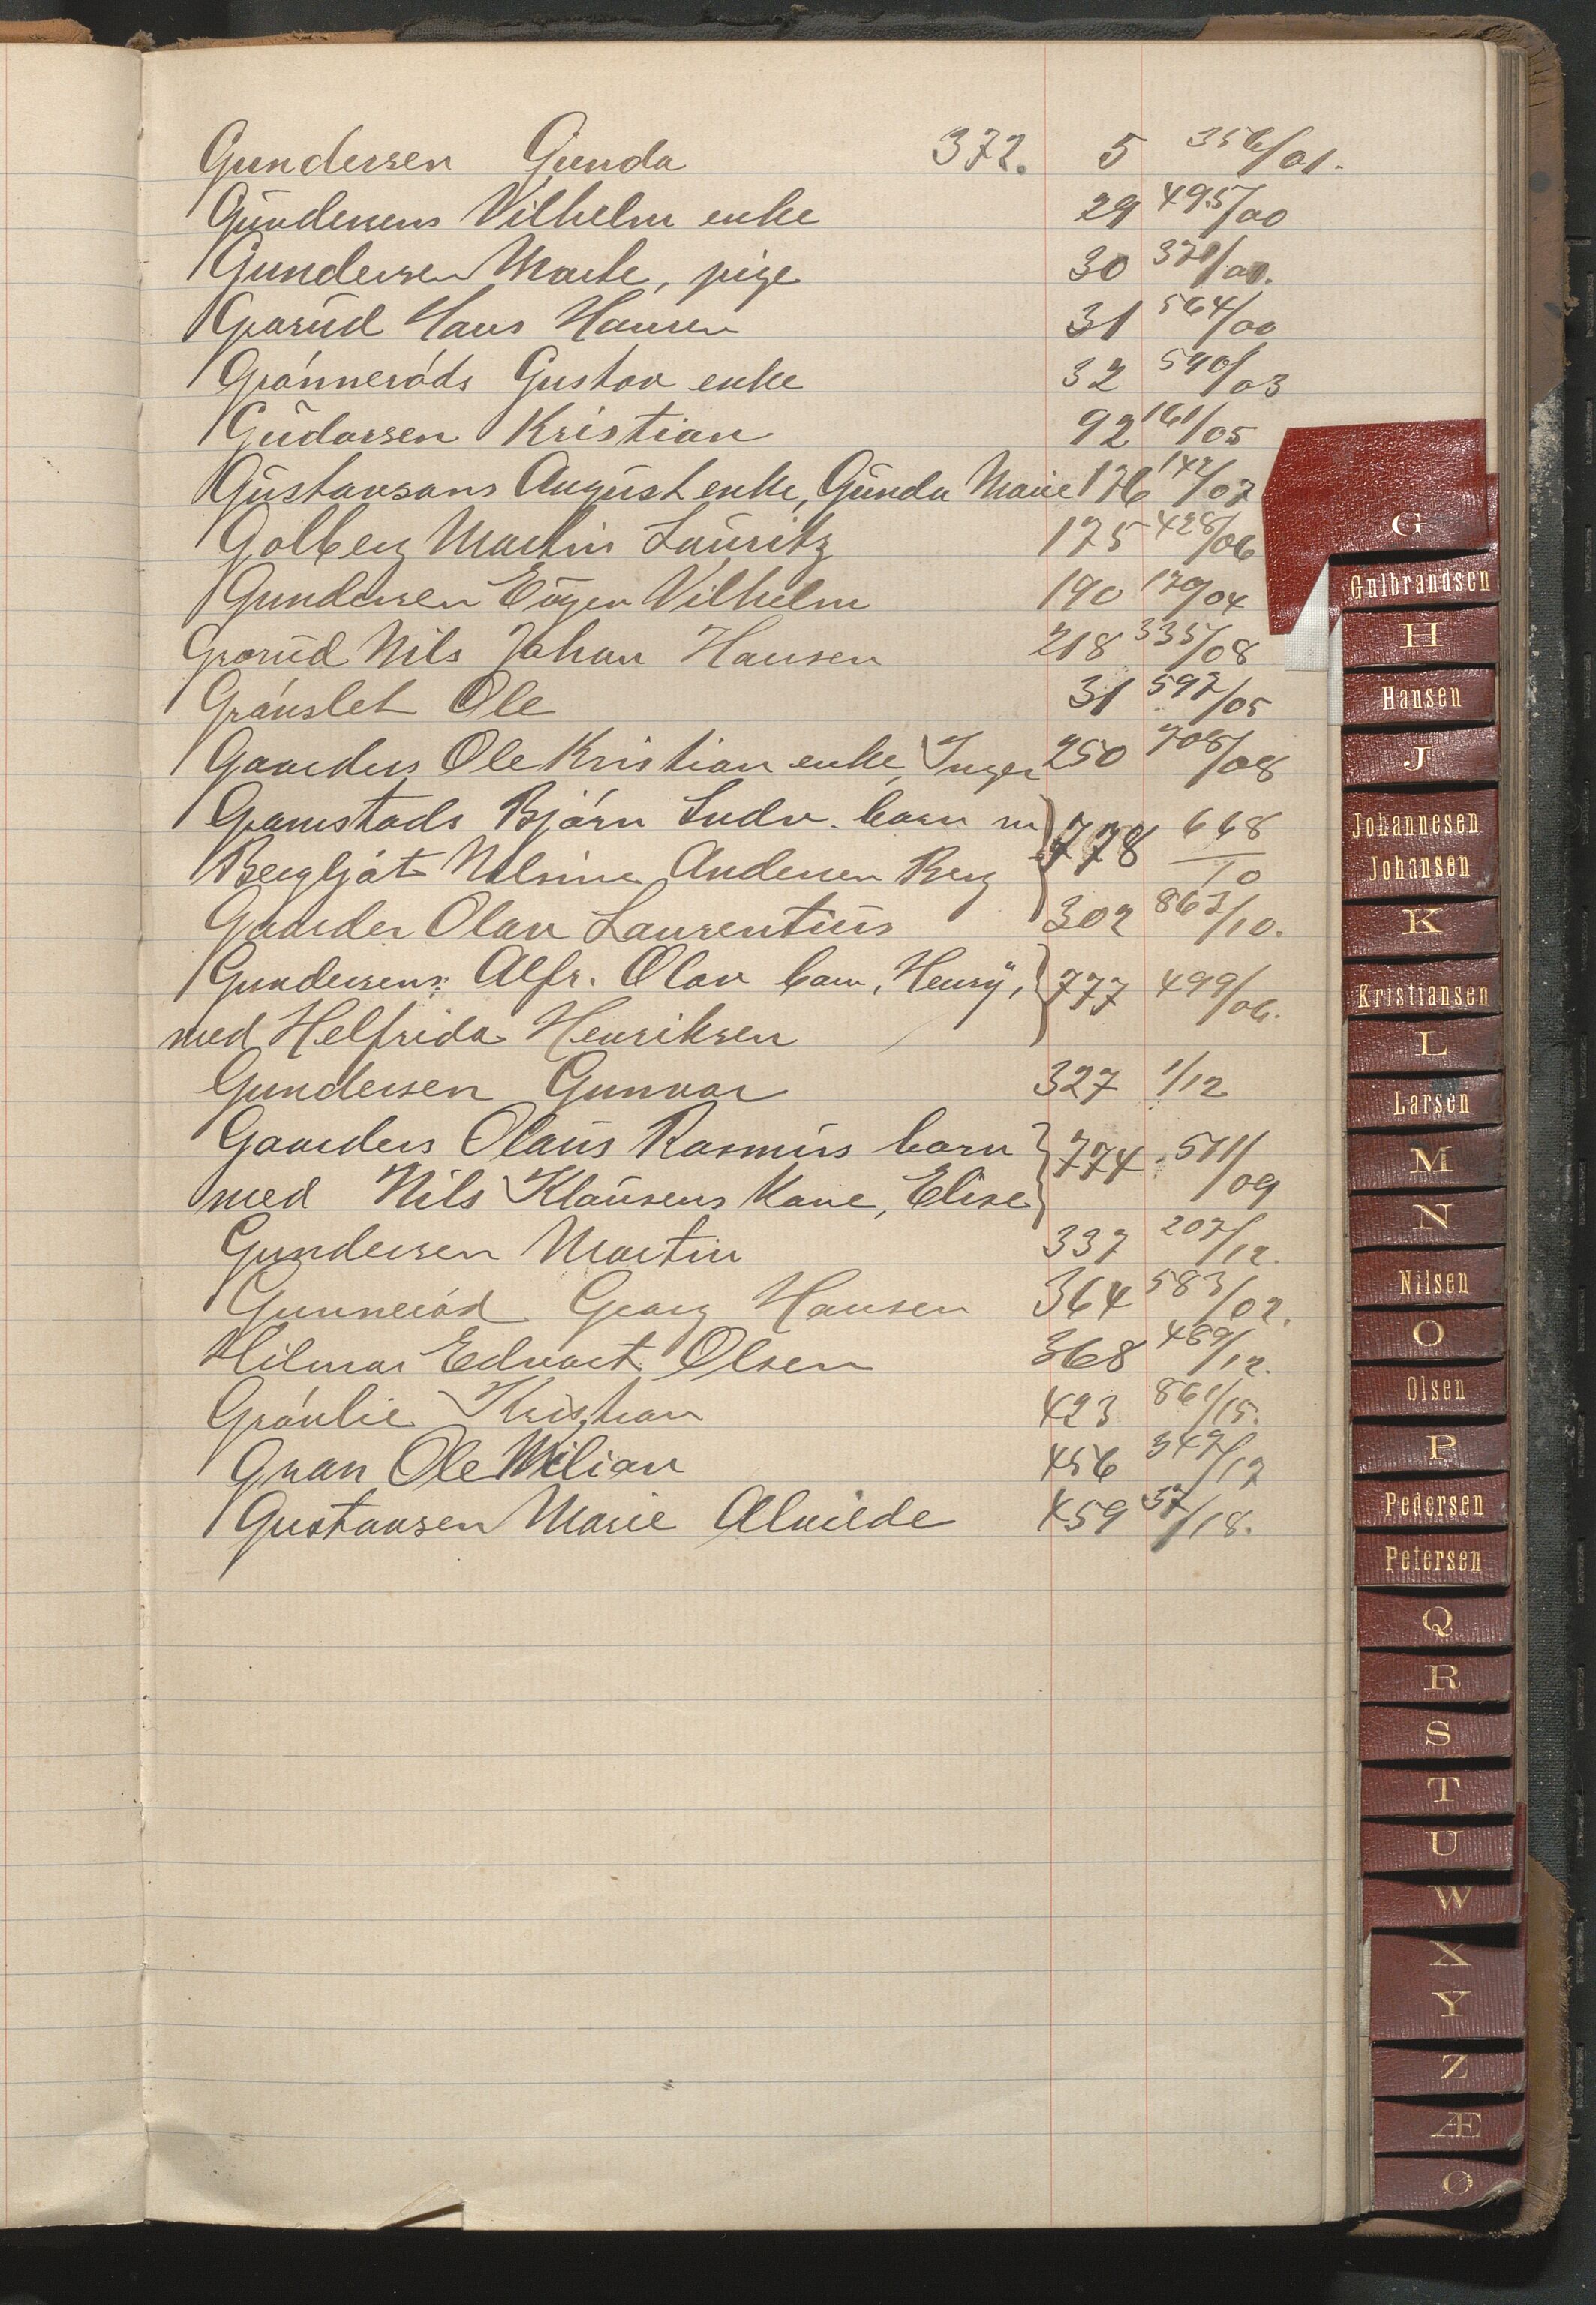 Gundersen Gunda 372. 5 356/01.
Gundersens Vilhelm enke 29 495/00
Gundersen Marte, pige 30 371/00.
Grorud Hans Hansen 31 564/00
Grønnerøds Gustav enke 32 590/03
Gudarsen Kristian 92 161/05
Gustavsons August enke, Gunda Marie 176 142/07
Golberg Martin Lauritz 175 428/06
Gundersen Eugen Vilhelm 190 179/04
Grorud Nils Johan Hansen 218 335/08
Grønslet Ole 31 597/05
Gaarders Ole Kristian enke, Inger 250 708/08
Gamstads Bjørn Ludv. barn m
Bergljøt Nilsine Andersen Berg 778 668/10
Gaarder Olav Laurentius 302 863/10.
Gundersens Alfr. Olav barn, Henry,
med Helfrida Henriksen 777 499/06.
Gundersen Gunvor 327 1/12
Gaarders Olaus Rasmus barn
med Nils Klausens kone, Elise 774 511/09
Gundersen Martin 337 207/12.
Gunnerød Georg Hansen 364 583/02.
Hilmar Edvart Olsen 368 489/12.
Grønlie Kristian 423 861/15.
Gran Ole Milian 456 347/17
Gustavsen Marie Alvilde 459 37/18.
G
Gulbrandsen
H
Hansen
J
Johannesen
Johansen
K
Kristiansen
L
Larsen
M
N
Nilsen
O
Olsen
P
Pedersen
Petersen
Q
R
S
T
U
W
X
Y
Z
Æ
Ø